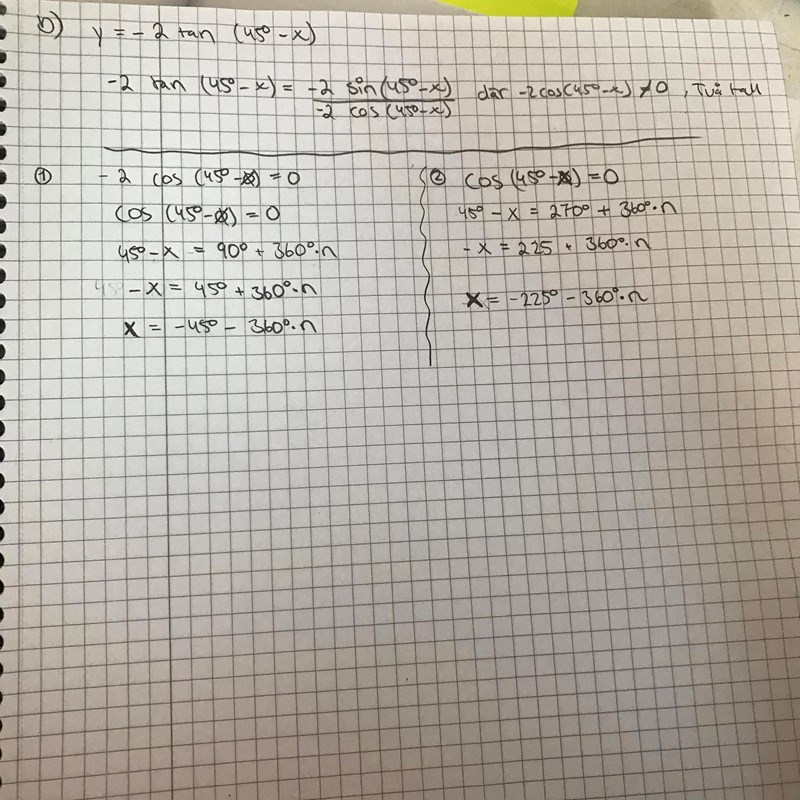 b) y = -2 tan (45° - x)
-2 tan (45° - x) = -2 sin(45° - x) / -2 cos(45° - x) där -2cos(45° - x) ≠ 0, Två fall
① -2 cos (45° - x) = 0
cos (45° - x) = 0
45° - x = 90° + 360°·n
-x = 45° + 360°·n
x = -45° - 360°·n
② cos (45° - x) = 0
45° - x = 270° + 360°·n
-x = 225 + 360°·n
x = -225° - 360°·n